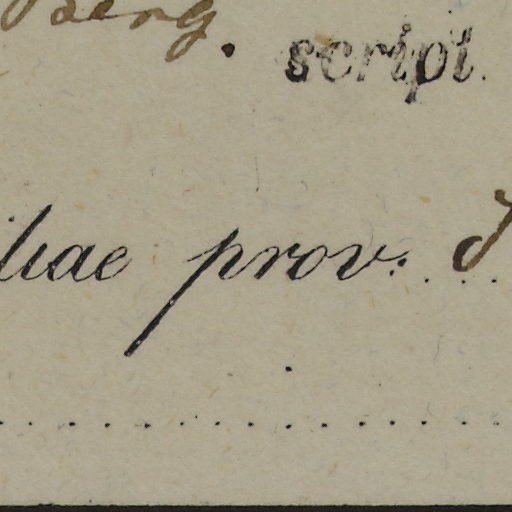 Berg. script.
iliae prov.